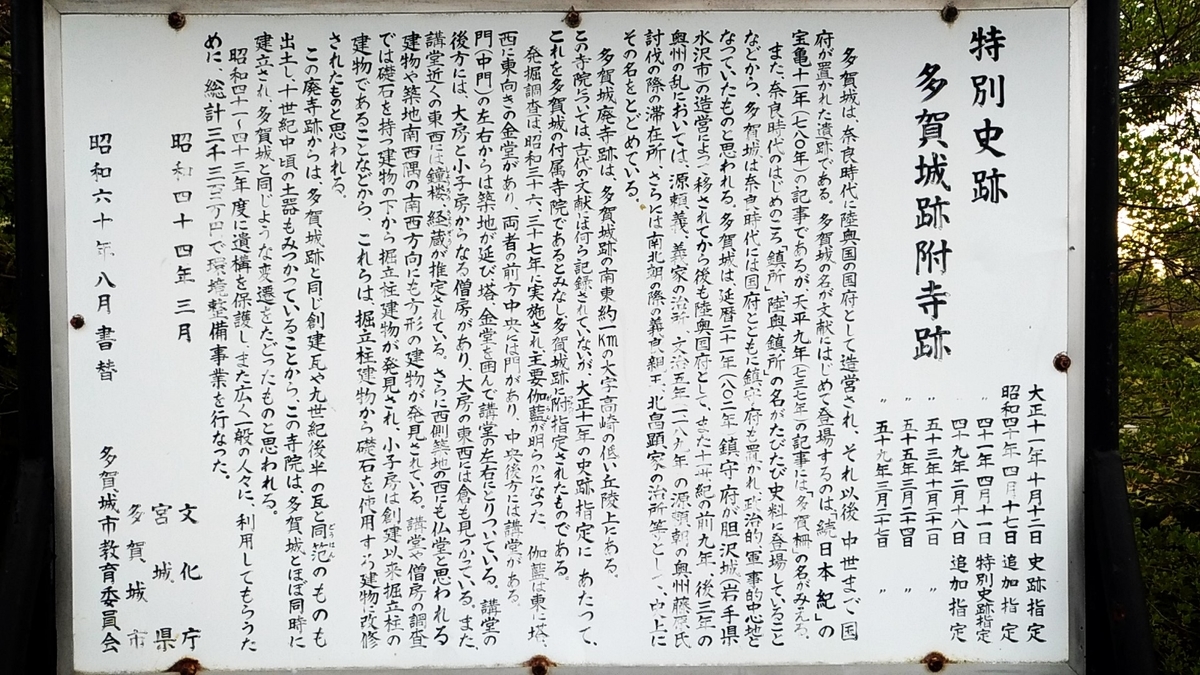 特別史跡
多賀城跡附寺跡
大正十一年十月十二日 史跡指定
昭和四十年四月十七日 追加指定
〃 四十一年四月十一日 特別史跡指定
〃 四十九年二月十八日 追加指定
〃 五十三年十月二十日 〃
〃 五十五年三月二十四日 〃
〃 五十九年三月二十七日 〃
多賀城は、奈良時代に陸奥国の国府として造営され、それ以後、中世まで国
府が置かれた遺跡である。多賀城の名が文献にはじめて登場するのは、続日本紀の
宝亀十一年(七八〇年)の記事であるが、天平九年(七三七年)の記事には「多賀柵」の名がみえる。
また、奈良時代のはじめのころ「鎮所」「陸奥鎮所」の名がたびたび史料に登場していること
などから、多賀城は奈良時代には国府とともに鎮守府も置かれ、政治的・軍事的中心地と
なっていたものと思われる。多賀城は延暦二十一年(八〇二年)鎮守府が胆沢城(岩手県
水沢市)の造営によって移されてから後も陸奥国府として、また十一世紀の前九年、後三年の
奥州の乱においては、源頼義、義家の治所、文治五年(一一八九年)の源頼朝の奥州藤原氏
討伐の際の滞在所、さらには南北朝の際の義良親王、北畠顕家の治所等として、史上に
その名をとどめている。
多賀城廃寺跡は、多賀城跡の南東約一Kmの大字高崎の低い丘陵上にある。
この寺院については、古代の文献には何ら記録されていないが、大正十一年の史跡指定にあたって、
これを多賀城の付属寺院であるとみなし多賀城跡に附指定されたものである。
発掘調査は昭和三十六、三十七年に実施され主要伽藍が明らかになった。伽藍は東に塔、
西に東向きの金堂があり、両者の前方中央には門があり、中央後方には講堂がある。
門(中門)の左右からは築地が延び塔、金堂を囲んで講堂の左右にとりついている。講堂の
後方には、大房と小子房からなる僧房があり、大房の東西には倉も見つかっている。また、
講堂近くの東西には鐘楼、経蔵が推定されている。さらに西側築地の西にも仏堂と思われる
建物や築地南西隅の南西方向にも方形の建物が発見されている。講堂や僧房の調査
では礎石を持つ建物の下から掘立柱建物が発見され、小子房は創建以来掘立柱の
建物であることなどから、これらは掘立柱建物から礎石を使用する建物に改修
されたものと思われる。
この廃寺跡からは、多賀城跡と同じ創建瓦や九世紀後半の瓦と同笵のものも
出土し、十世紀中頃の土器もみつかっていることから、この寺院は多賀城とほぼ同時に
建立され、多賀城と同じような変遷をたどったものと思われる。
昭和四十一〜四十三年度に遺構を保護し、また広く一般の人々に、利用してもらうた
めに、総計三千三百万円で環境整備事業を行なった。
昭和四十四年三月
昭和六十年八月書替
文化庁
宮城県
多賀城市
多賀城市教育委員会